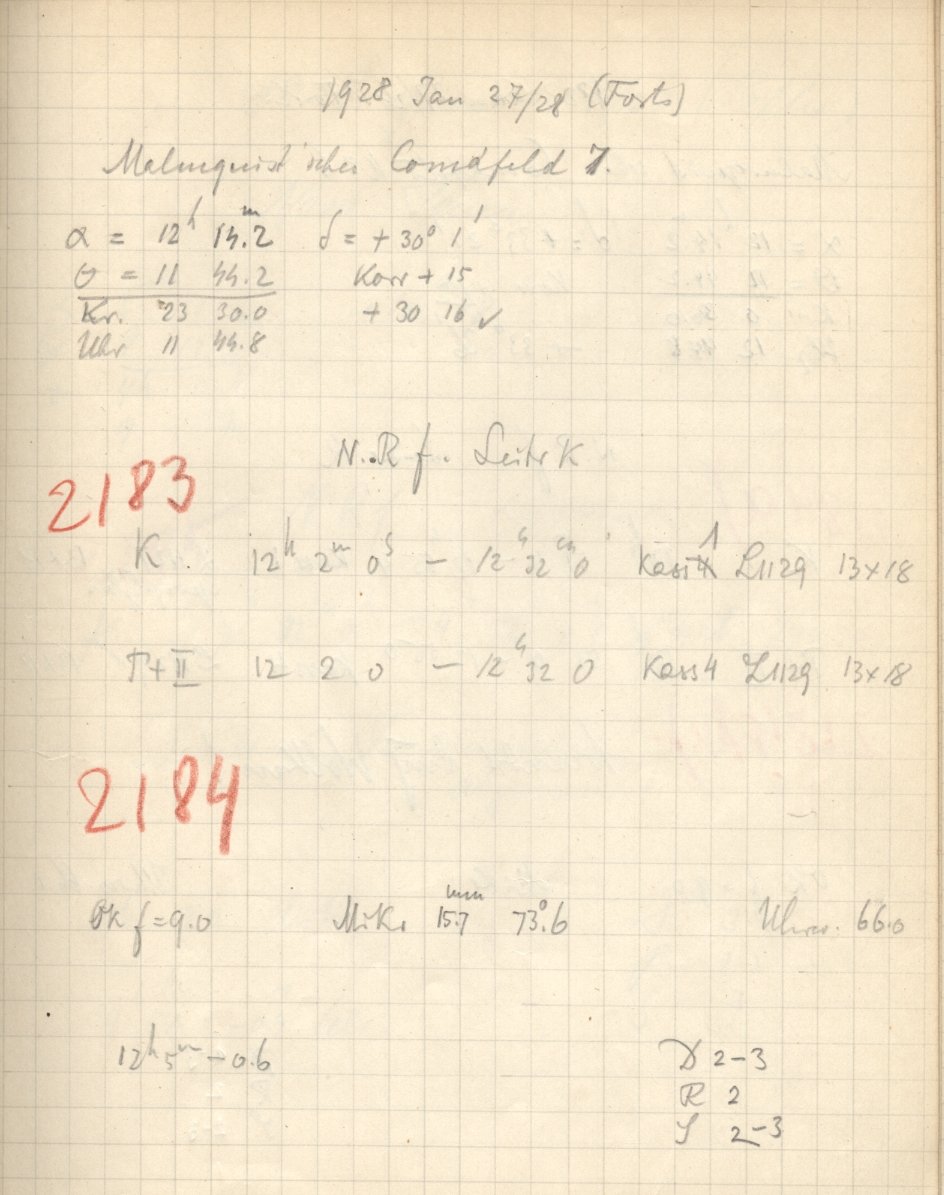 1928 Jan 27/28 (Forts)
Malmquist'sches Comafeld 7.
α = 12h 14m.2 δ = +30° 1'
θ = 11 44.2 Korr + 15
Kr. 23 30.0 + 30 16 ✓
Uhr 11 44.8
N..R f. Leitr K
2183
K. 12h 2m 0s — 12h 32m 0 Kass 1 L1129 13×18
T+II 12 2 0 — 12h 32 0 Kass 4 L1129 13×18
2184
Ok f=9.0 Mikr 15.7mm 73°.6 Uhrw. 66.0
12h 5m −0.6
D 2-3
R 2
S 2-3